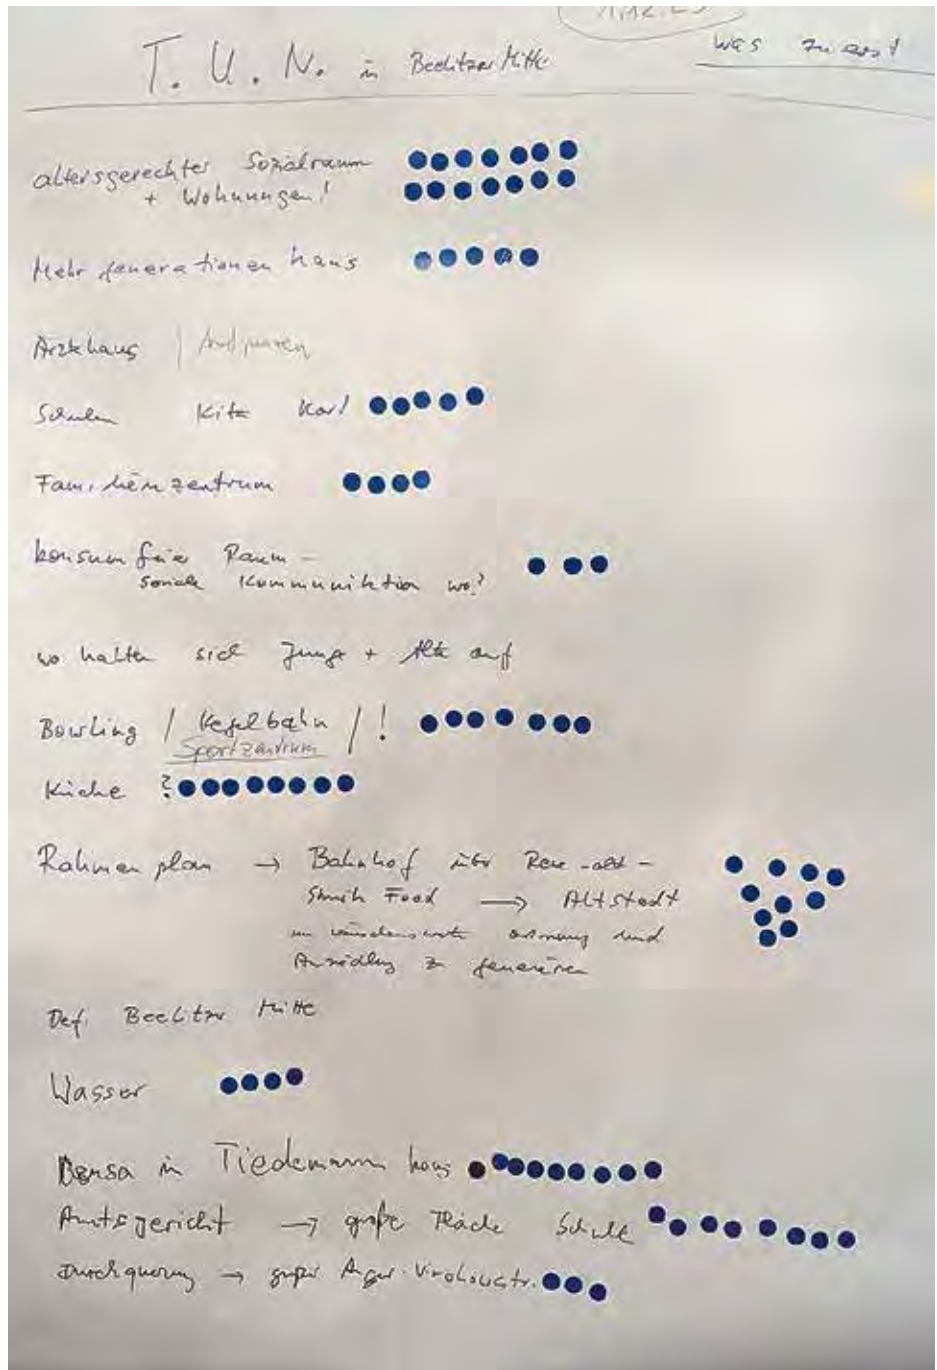 11.12.23
was zuerst
T. U. N. in Beelitzer Mitte
altersgerechter Sozialraum
+ Wohnungen!
Mehrgenerationenhaus
Ärztehaus /
Schulen Kita Karl
Familienzentrum
konsumfreie Raum -
soziale Kommuniktion wo?
wo halten sich Junge + Alte auf
Bowling / Kegelbahn / !
Sportzentrum
Küche ?
Rahmenplan → Bahnhof über Rewe - aldi -
Food → Altstadt
und
Ansiedlung zu generieren
Def. Beelitzer Mitte
Wasser
in Tiedemannhaus
Amtsgericht → große Fläche Schule
Durchquerung → Anger - Virchowstr.